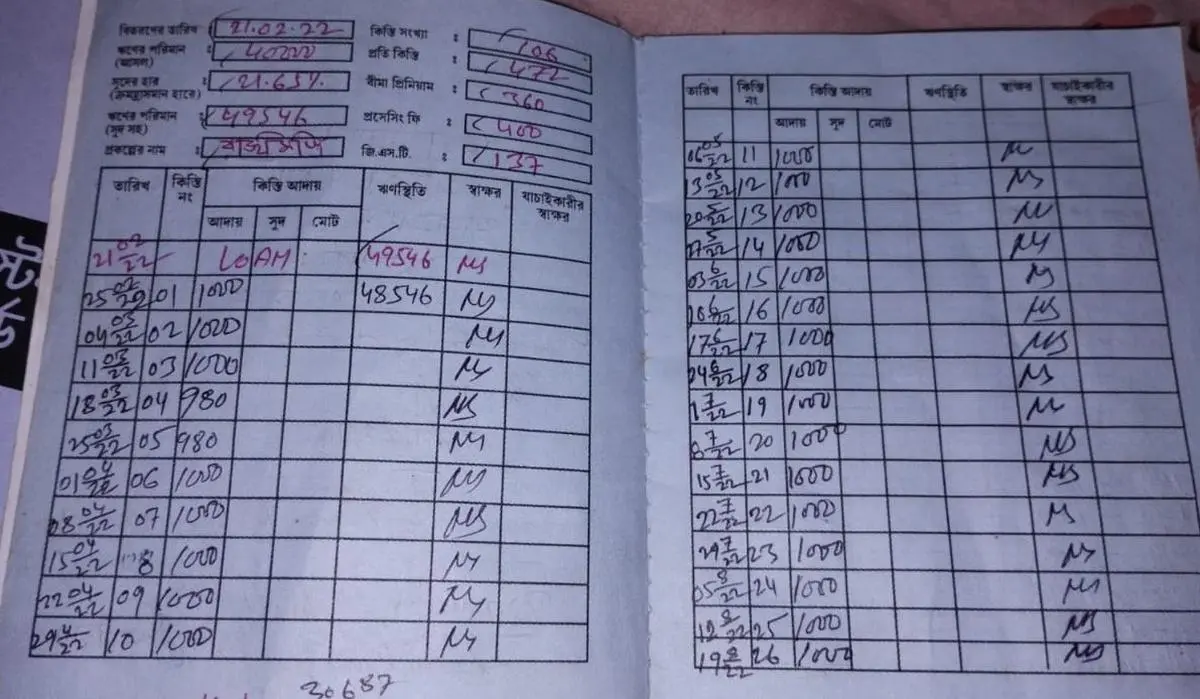 বিতরণের তারিখ : 21.02.22 কিস্তি সংখ্যা : 106
ঋণের পরিমান (আসল) : 40000 প্রতি কিস্তি : 472
সুদের হার (ক্রমহ্রাসমান হারে) : 21.65% বীমা প্রিমিয়াম : 360
ঋণের পরিমান (সুদ সহ) : 49546 প্রসেসিং ফি : 400
প্রকল্পের নাম : জি.এস.টি. : 137
তারিখ কিস্তি নং কিস্তি আদায় ঋণস্থিতি স্বাক্ষর যাচাইকারীর স্বাক্ষর
আদায় সুদ মোট
21 02/22 LOAN 49546 NS
25 02/22 01 1000 48546 NS
04 03/22 02 1020 NS
11 03/22 03 1000 NS
18 03/22 04 980 NS
25 03/22 05 980 NS
01 04/22 06 1000 NS
08 04/22 07 1000 NS
15 04/22 8 1000 NS
22 04/22 09 1000 NS
29 4/22 10 1000 NS
30687
তারিখ কিস্তি নং কিস্তি আদায় ঋণস্থিতি স্বাক্ষর যাচাইকারীর স্বাক্ষর
আদায় সুদ মোট
06 05/22 11 1000 NS
13 05/22 12 1000 NS
20 5/22 13 1000 NS
27 5/22 14 1000 NS
03 6/22 15 1000 NS
10 6/22 16 1000 NS
17 6/22 17 1000 NS
24 6/22 18 1000 NS
1 7/22 19 1000 NS
8 7/22 20 1000 NS
15 7/22 21 1000 NS
22 7/22 22 1000 NS
29 7/22 23 1000 NS
05 8/22 24 1000 NS
12 8/22 25 1000 NS
19 8/22 26 1000 NS